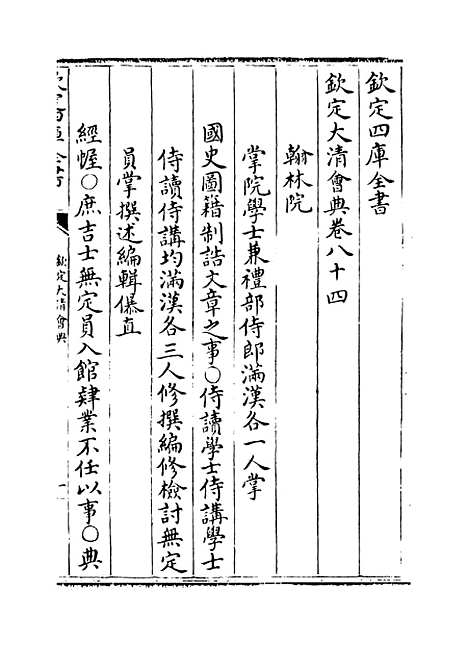 欽定四庫全書
欽定大清會典卷八十四
翰林院
掌院學士兼禮部侍郎滿漢各一人掌
國史圖籍制誥文章之事○侍讀學士侍講學士
侍讀侍講均滿漢各三人修撰編修檢討無定
員掌撰述編輯儤直
經幄○庶吉士無定員入館肄業不任以事○典
欽定大清會典